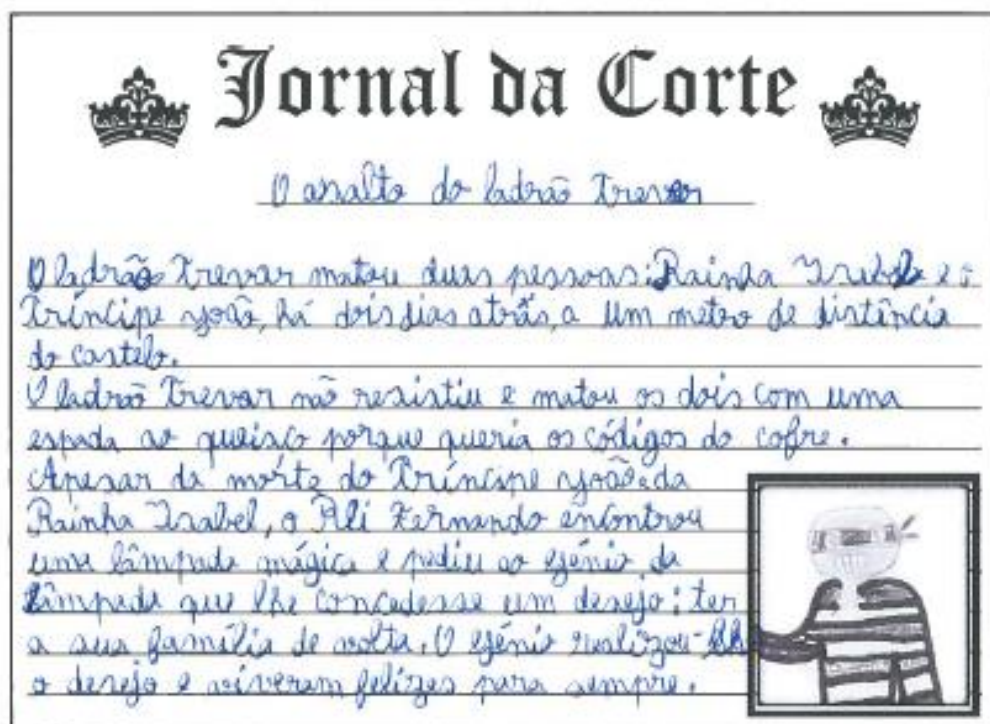 Jornal da Corte
O assalto do ladrão Trevor
O ladrão Trevar matou duas pessoas: Rainha Isabel e o
Príncipe João, há dois dias atrás, a um metro de distância
do castelo.
O ladrão Trevar não resistiu e matou os dois com uma
espada ao queixo porque queria os códigos do cofre.
Apesar da mórte do Príncipe João e da
Rainha Isabel, o Rei Fernando encontrou
uma lâmpada mágica e pediu ao génio da
lâmpada que lhe concedesse um desejo: ter
a sua família de volta. O génio realizou-lhe
o desejo e viveram felizes para sempre.